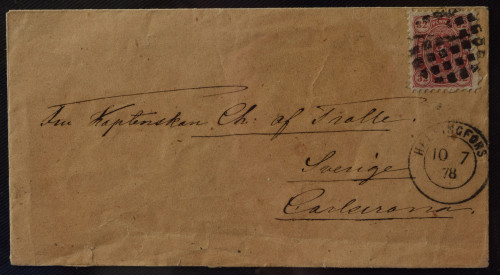 Fru Kaptenskan Ch. af Trolle.
Sverige
Carlscrona.
HELSINGFORS
10 7
78